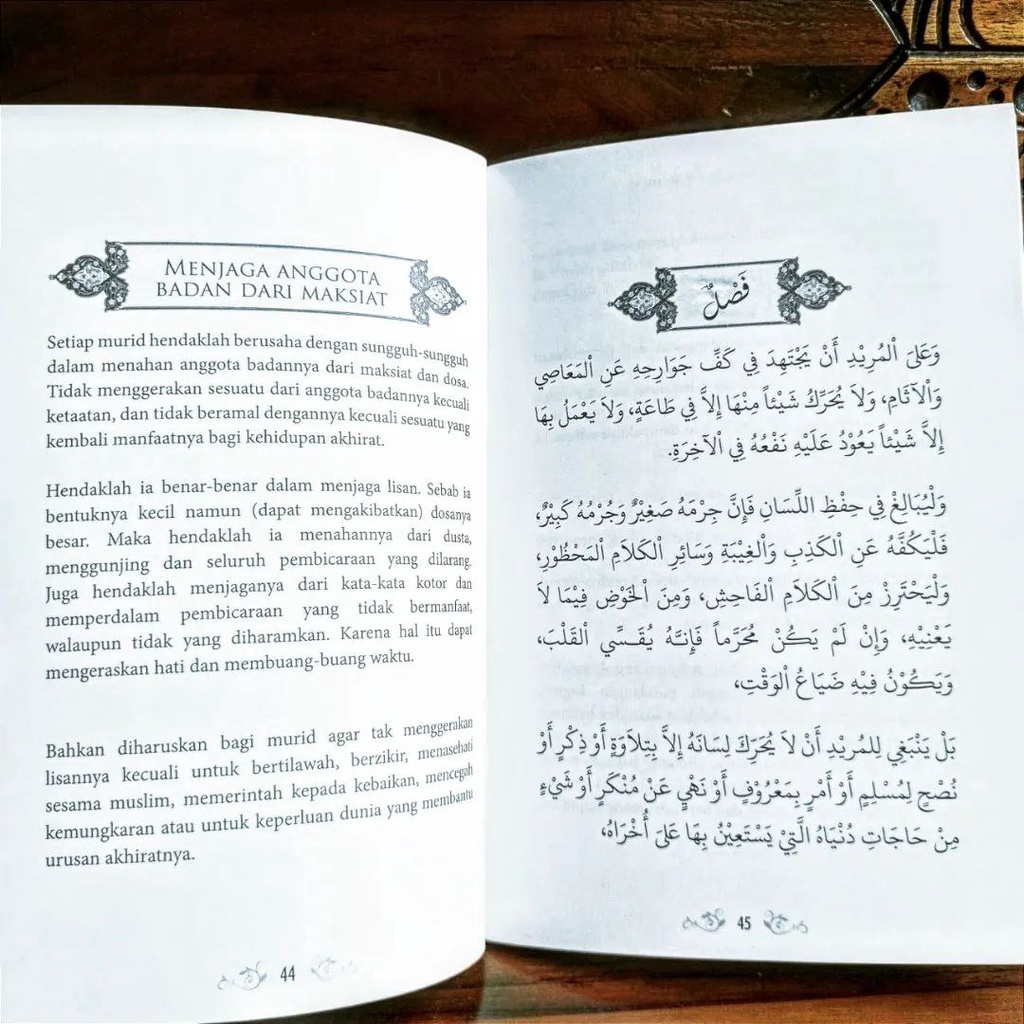 MENJAGA ANGGOTA
BADAN DARI MAKSIAT
Setiap murid hendaklah berusaha dengan sungguh-sungguh
dalam menahan anggota badannya dari maksiat dan dosa.
Tidak menggerakan sesuatu dari anggota badannya kecuali
ketaatan, dan tidak beramal dengannya kecuali sesuatu yang
kembali manfaatnya bagi kehidupan akhirat.
Hendaklah ia benar-benar dalam menjaga lisan. Sebab ia
bentuknya kecil namun (dapat mengakibatkan) dosanya
besar. Maka hendaklah ia menahannya dari dusta,
menggunjing dan seluruh pembicaraan yang dilarang.
Juga hendaklah menjaganya dari kata-kata kotor dan
memperdalam pembicaraan yang tidak bermanfaat,
walaupun tidak yang diharamkan. Karena hal itu dapat
mengeraskan hati dan membuang-buang waktu.
Bahkan diharuskan bagi murid agar tak menggerakan
lisannya kecuali untuk bertilawah, berzikir, menasehati
sesama muslim, memerintah kepada kebaikan, mencegah
kemungkaran atau untuk keperluan dunia yang membantu
urusan akhiratnya.
44
فَصْلٌ
وَعَلَى الْمُرِيْدِ أَنْ يَجْتَهِدَ فِي كَفِّ جَوَارِحِهِ عَنِ الْمَعَاصِي
وَالْآثَامِ، وَلاَ يُحَرِّكُ شَيْئاً مِنْهَا إِلاَّ فِي طَاعَةٍ، وَلاَ يَعْمَلُ بِهَا
إِلاَّ شَيْئاً يَعُوْدُ عَلَيْهِ نَفْعُهُ فِي الْآخِرَةِ.
وَلْيُبَالِغْ فِي حِفْظِ اللِّسَانِ فَإِنَّ جِرْمَهُ صَغِيْرٌ وَجُرْمُهُ كَبِيْرٌ،
فَلْيَكُفَّهُ عَنِ الْكَذِبِ وَالْغِيْبَةِ وَسَائِرِ الْكَلَامِ الْمَحْظُوْرِ،
وَلْيَحْتَرِزْ مِنَ الْكَلَامِ الْفَاحِشِ، وَمِنَ الْخَوْضِ فِيْمَا لاَ
يَعْنِيْهِ، وَإِنْ لَمْ يَكُنْ مُحَرَّماً فَإِنَّهُ يُقَسِّي الْقَلْبَ،
وَيَكُوْنُ فِيْهِ ضَيَاعُ الْوَقْتِ،
بَلْ يَنْبَغِي لِلْمُرِيْدِ أَنْ لاَ يُحَرِّكَ لِسَانَهُ إِلاَّ بِتِلَاوَةٍ أَوْ ذِكْرٍ أَوْ
نُصْحٍ لِمُسْلِمٍ أَوْ أَمْرٍ بِمَعْرُوْفٍ أَوْ نَهْيٍ عَنْ مُنْكَرٍ أَوْ شَيْءٍ
مِنْ حَاجَاتِ دُنْيَاهُ الَّتِيْ يَسْتَعِيْنُ بِهَا عَلَى أُخْرَاهُ،
45